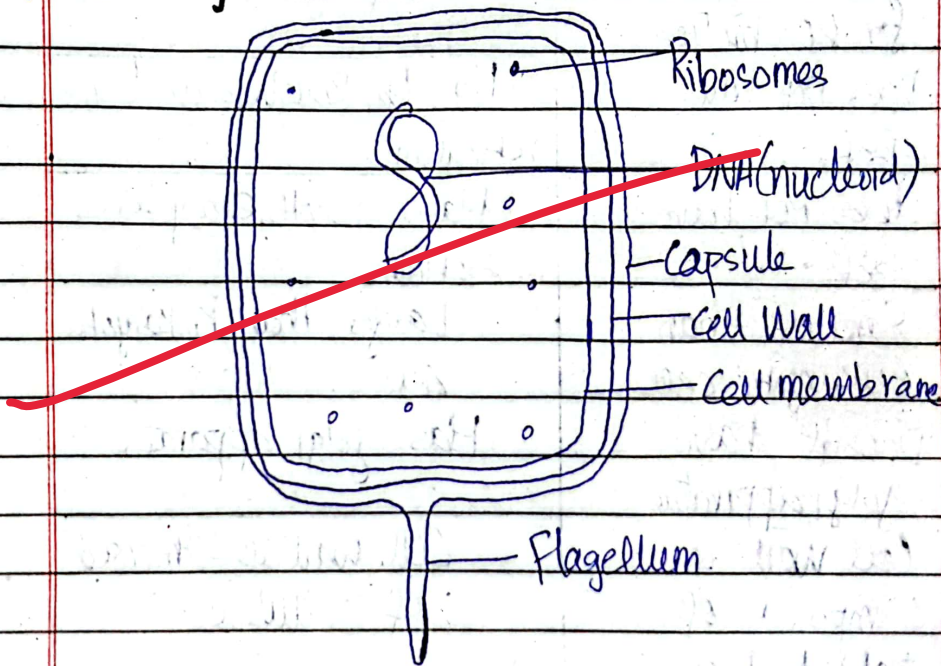 Ribosomes
DNA(nucleoid)
Capsule
Cell Wall
Cell membrane
Flagellum